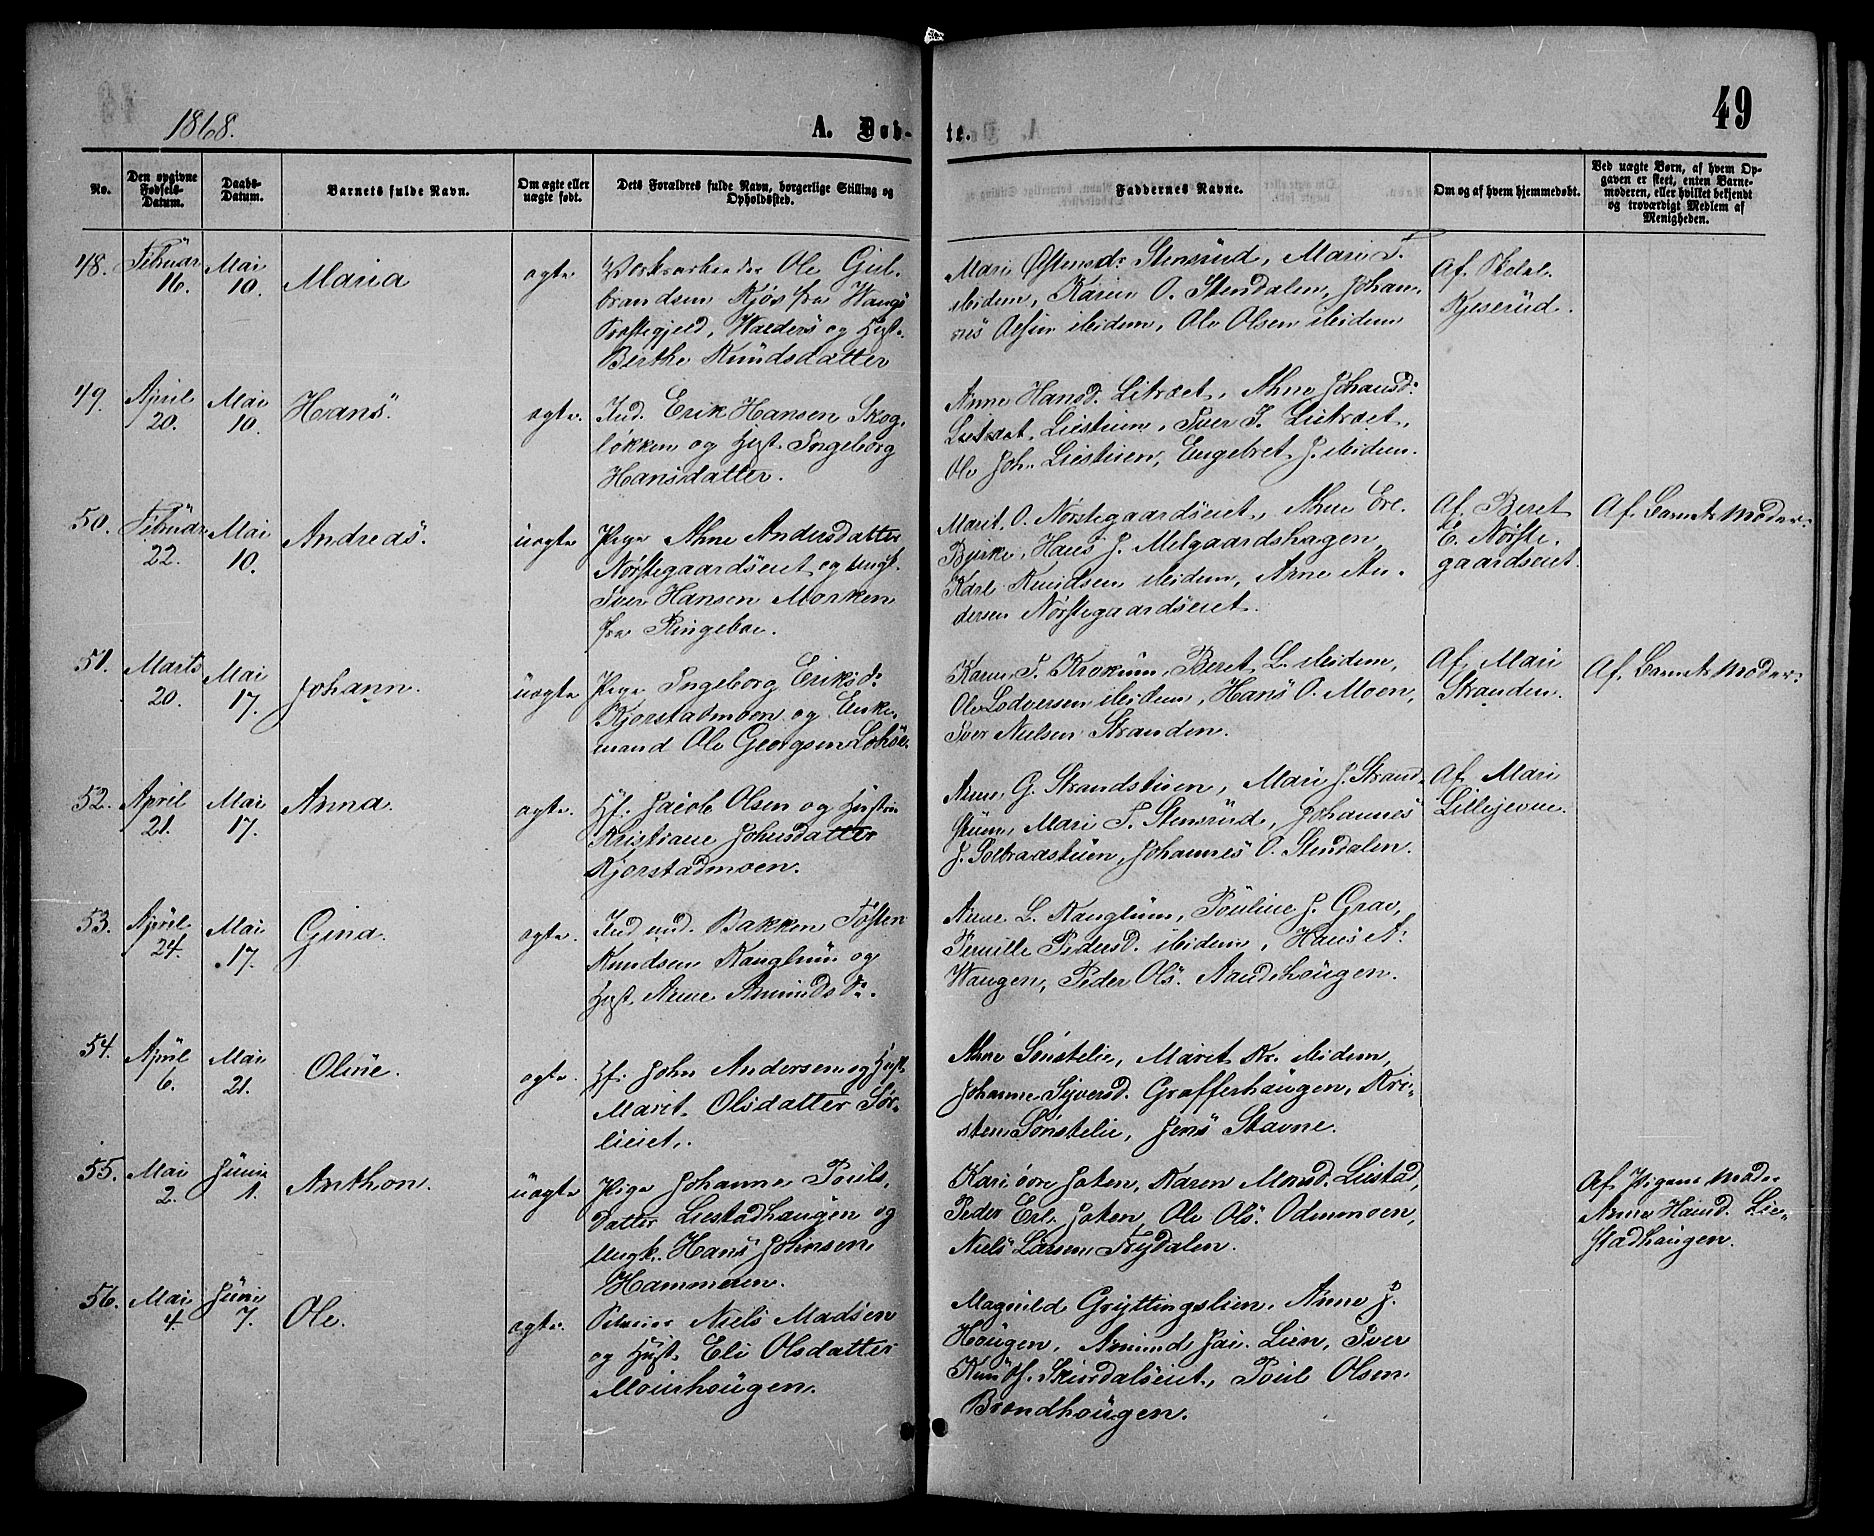 1868.
A. Døb-
te.
49
No.
Den opgivne Fødsels-Datum.
Daabs-Datum.
Barnets fulde Navn.
Om ægte eller uægte født.
Dets Forældres fulde Navn, borgerlige Stilling og Opholdssted.
Faddernes Navne.
Om og af hvem hjemmedøbt.
Ved uægte Børn, af hvem Op-
gaven er skeet, enten Barne-
moderen, eller hvilket bekjendt
og troværdigt Medlem af
Menigheden.
48. Februar 16. Mai 10. Maria ægte
Ole Gul-
brandsen Kjøs fra Wangs
Præstegjeld, og Hust.
Berthe Knudsdatter
Mari Stensrud, Mari T.
ibidem, Karen O. Stendalen, Johan-
nes ibidem, Ole Olsen ibidem
Af
Kjeserud.
49. April 20. Mai 10. Hans. ægte.
Ind. Erik Hansen Skog-
løkken og Hust. Ingeborg
Hansdatter.
Anne Hansd. Litræet, Ahne Johansd:
Listuen, Iver J. Lietræet,
Ole Joh. Liestuen, Engebret J. ibidem.
50. Februar 22. Mai 10. Andreas. uægte
Pige Ahne Andersdatter
Nørstegaardseiet og Ungk.
Iver Hansen Morken
fra Ringeboe.
Marit O. Nørstegaardseiet, Ahne Ere.
Bjerke, Hans J. Melgaardshagen
Karl Knudsen ibidem, Arne An-
dersen Nørstegaardseiet.
Af Beret
E. Nørste-
gaardseiet.
Af Barnets Moder.
51. Marts 20. Mai 17. Johann. uægte
Pige Ingeborg Eriksd:
Kjorstadmoen og Enke-
mand Ole Georgsen
Karen T. Krokum, Beret L. ibidem,
Ole Lodversen ibidem, Hans O. Moen,
Iver Nielsen Stranden.
Af Mari
Stranden.
Af Barnets Moder.
52. April 21. Mai 17. Anna. ægte.
Hf. Jacob Olsen og Hustru
Kristiane Johnsdatter
Kjorstadmoen.
Anne G. Strandstuen, Mari J. Strand-
stuen, Mari T. Stensrud, Johannes
J. Solbraastuen, Johannes O. Stendalen.
Af Mari
Lillejevne.
53. April 24. Mai 17. Gina. ægte.
Ind. und. Bakken Tosten
Knudsen Kanglum og
Hust. Anne Amundsd:.
Anne L. Kanglum, Pauline J. Grae,
Pernille Pedersd. ibidem, Hans
Waugen, Peder Ols.
54. April 6. Mai 21. Oline. ægte.
Hf. John Andersen og Hust.
Marit Olsdatter Sør-
lieiet.
Ahne Sønstelie, Marit Kr. ibidem,
Johanne Syversd. Grafferhaugen, Kri-
sten Sønstelie, Jens Stavne.
55. Mai 2. Juni 1. Anthon. uægte
Pige Johanne Pouls-
datter Liestadhaugen og
Ungk. Hans Johnsen
Hammeren.
Kari øvre Joten, Karen Monsd. Liestad,
Peder Erl. Joten, Ole Ols. Odenmoen,
Niels Larsen Trydalen.
Af Pigens Moder
Anne Hansd. Lie-
stadhaugen.
56. Mai 4. Juni 7. Ole. ægte.
Niels Madsen
og Hust. Eli Olsdatter
Mourhougen.
Magnild Gryttingslien, Anne J.
Hougen, Amund Jac. Lien, Iver
Skurdalseiet, Poul Olsen
Brandhougen.